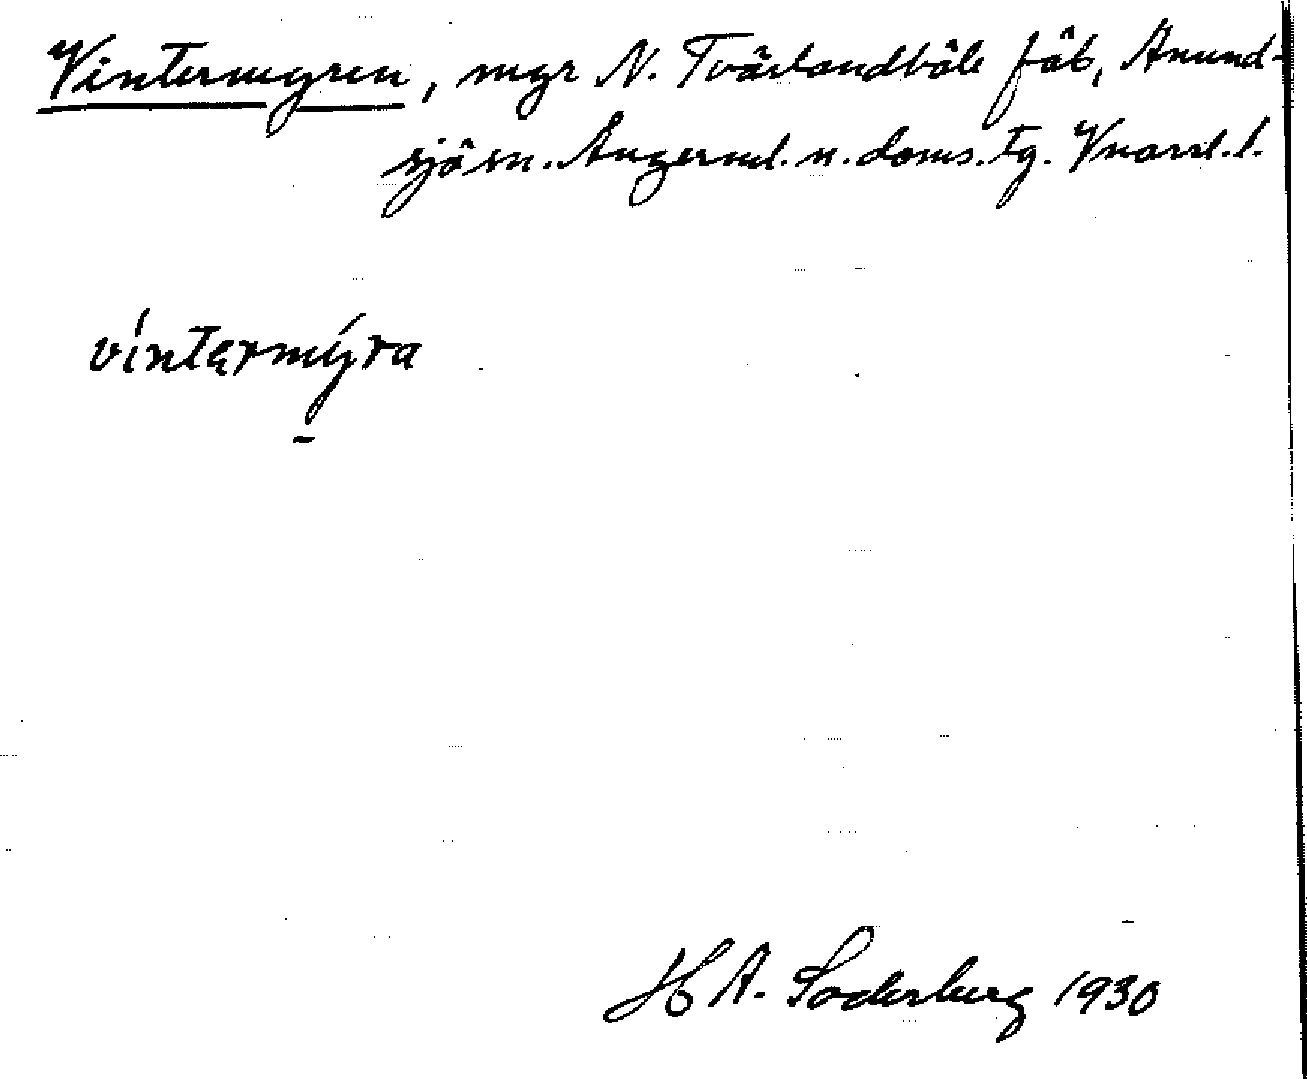 Vintermyren, myr N. Tvärlandböle fäb, Anund-
sjö sn. Ångerml. n. doms. tg. Vnorrl. l.
víntarmýra
H A. Söderberg 1930